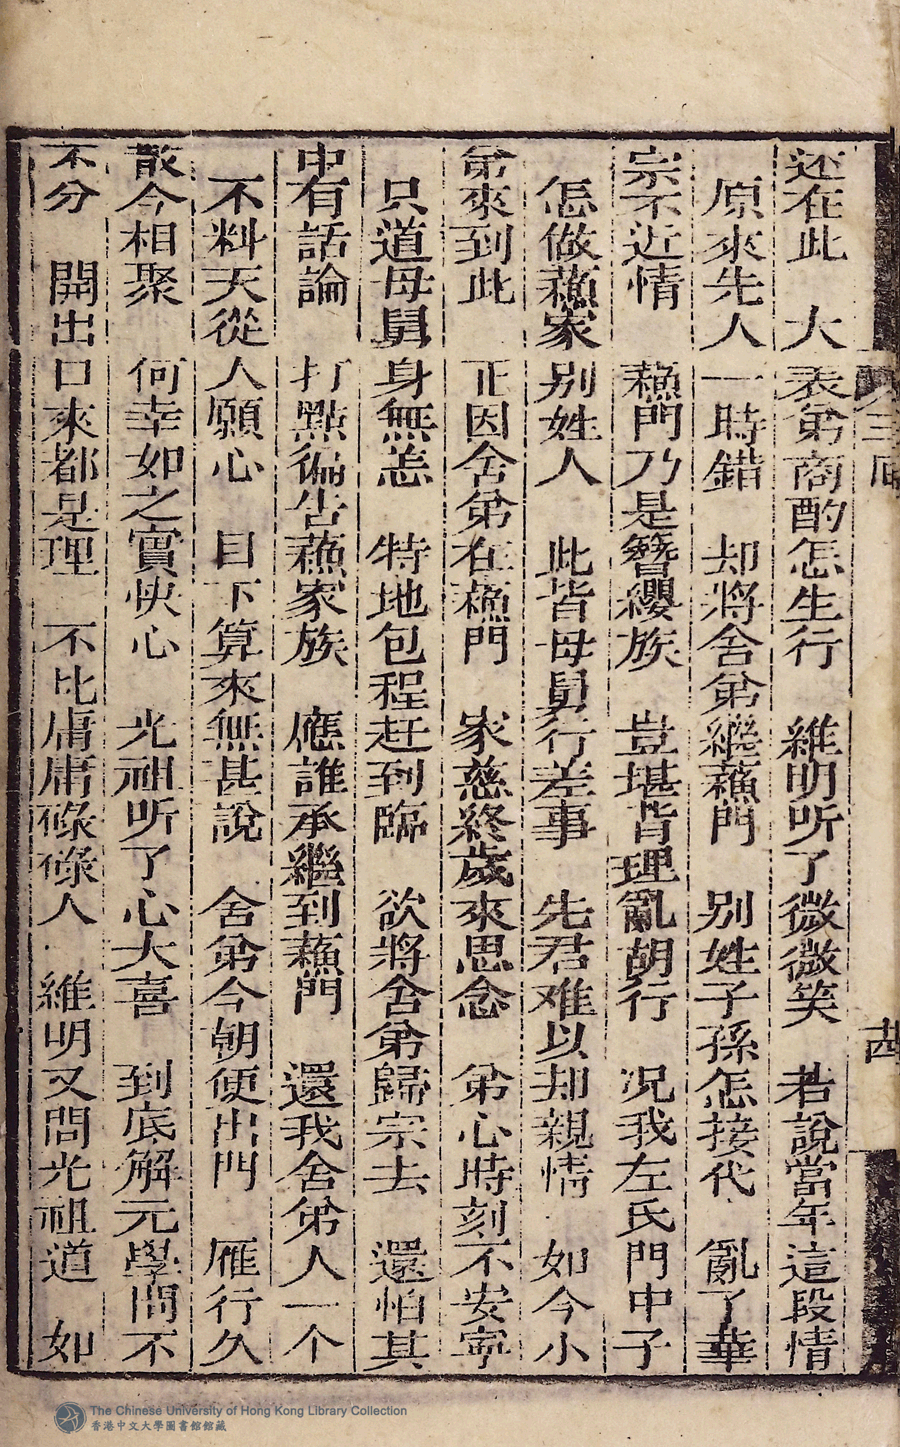 还在此　大表弟商酌怎生行　維明听了微微笑　若說當年這段情
原來先人一時錯　却將舍弟繼蘓門　别姓子孫怎接代　亂了華
宗不近情　蘓門乃是簪纓族　豈堪背理亂胡行　况我左氏門中子
怎做蘓家别姓人　此皆母舅行差事　先君难以却親情　如今小
弟來到此　正因舍弟在蘓門　家慈終歲來思念　弟心時刻不安寧
只道母舅身無恙　特地包程赶到臨　欲將舍弟歸宗去　還怕其
中有話論　打點徧告蘓家族　應誰承繼到蘓門　還我舍弟人一个
不料天從人願心　目下算來無甚說　舍弟今朝便出門　雁行久
散今相聚　何幸如之實快心　光祖听了心大喜　到底解元學問不
不分　開出口來都是理　不比庸庸碌碌人　維明又問光祖道　如
The Chinese University of Hong Kong Library Collection
香港中文大學圖書館館藏